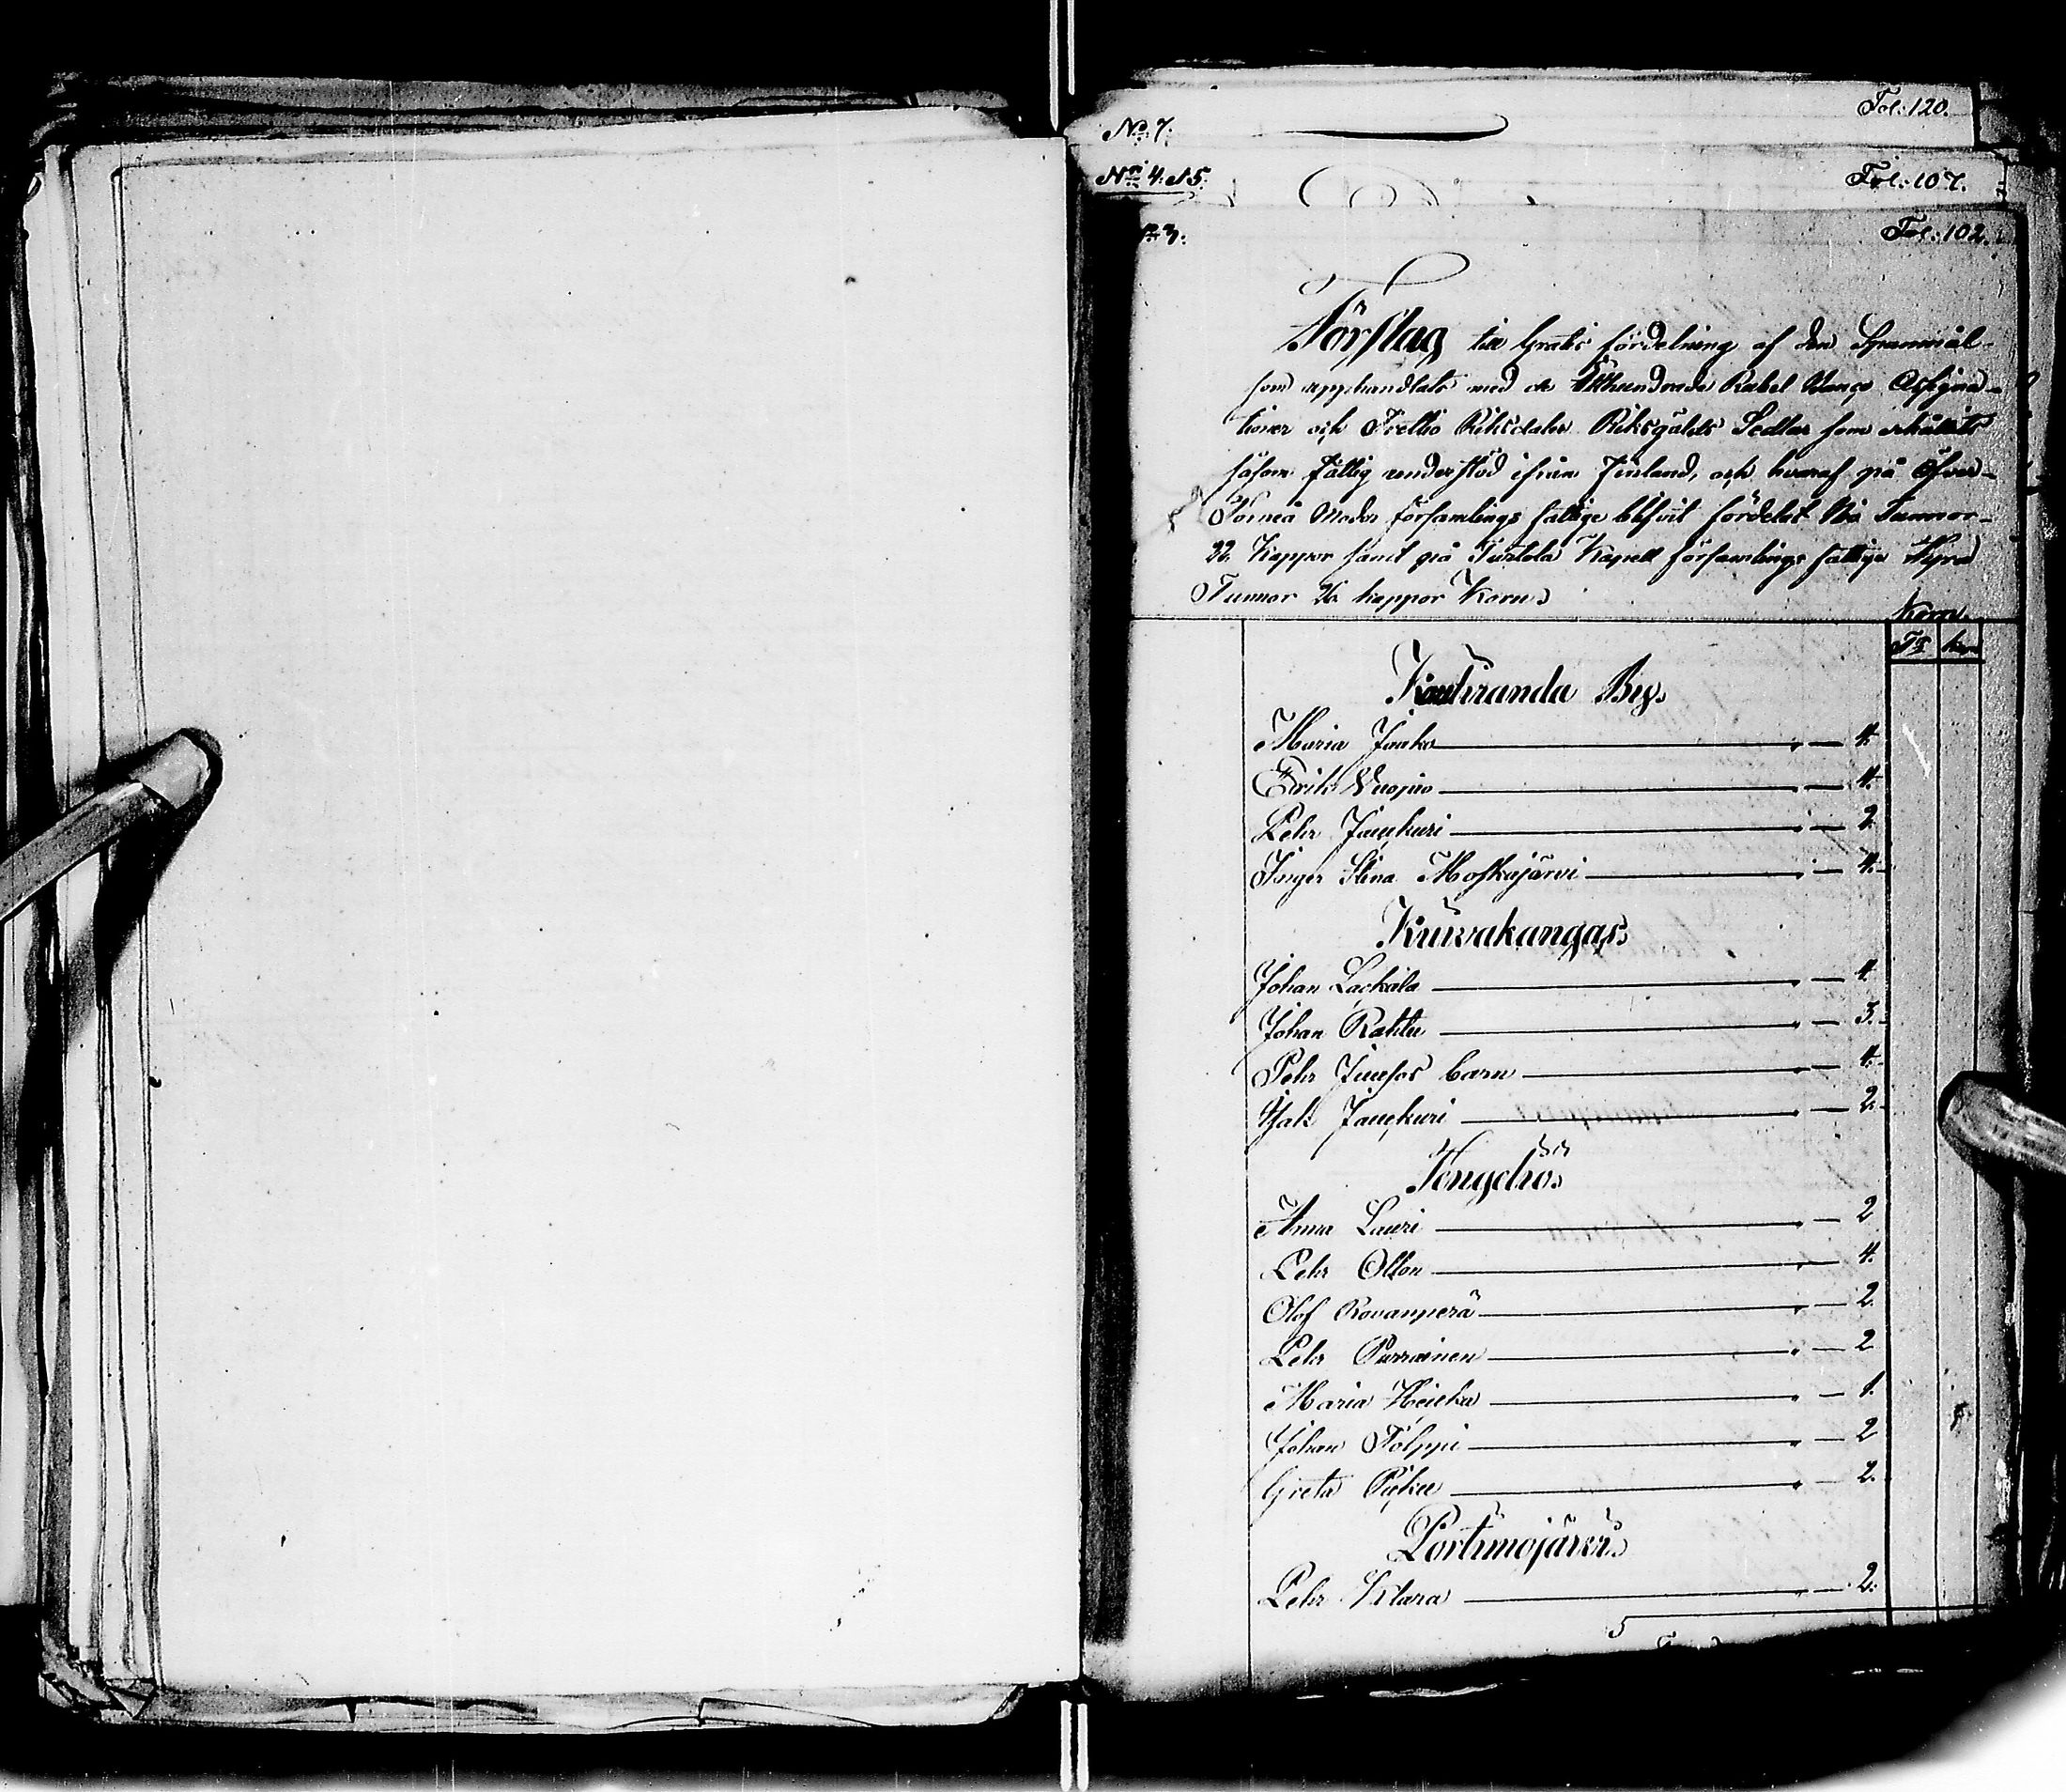 Nº 7.
Fol: 120.
Nº 4: & 5.
Fol: 107.
Nº 3:
Fol: 102.
Förslag till Gratis fördelning af den Spanmål
som upphandlats med de Etthundrade Rubel Banco Assigna-
tioner och Trettio Riksdaler Riksgälds Sedlar som
såsom fattig understöd ifrån Finland, och hvaraf på Öfver-
Torneå Moder församlings fattige blifvit fördelat Nio Tunnor
22 Kappor samt på Turtola Kapell församlings fattige Fyra
Tunnor 26 kappor Korn.
Korn.
Tr kpr
Kauliranda By.
Maria Jauko — 4.
Erik Vuopio — 4.
Pehr Jaukuri — 2
Inger Stina Moskajärvi — 4.
Kuivakangas.
Johan Lackala — 4
Johan Rahtu — 3.
Pehr Juusos barn — 4.
Isak Jaukuri — 2.
Tengeliö.
Anna Lauri — 2
Pehr Ollon — 4.
Olof Rovanperä — 2.
Pehr Purrainen — 2
Maria Heicka — 1.
Johan Tolppi — 2
Greta — 2.
Portimojärvi.
Pehr Klara — 2.